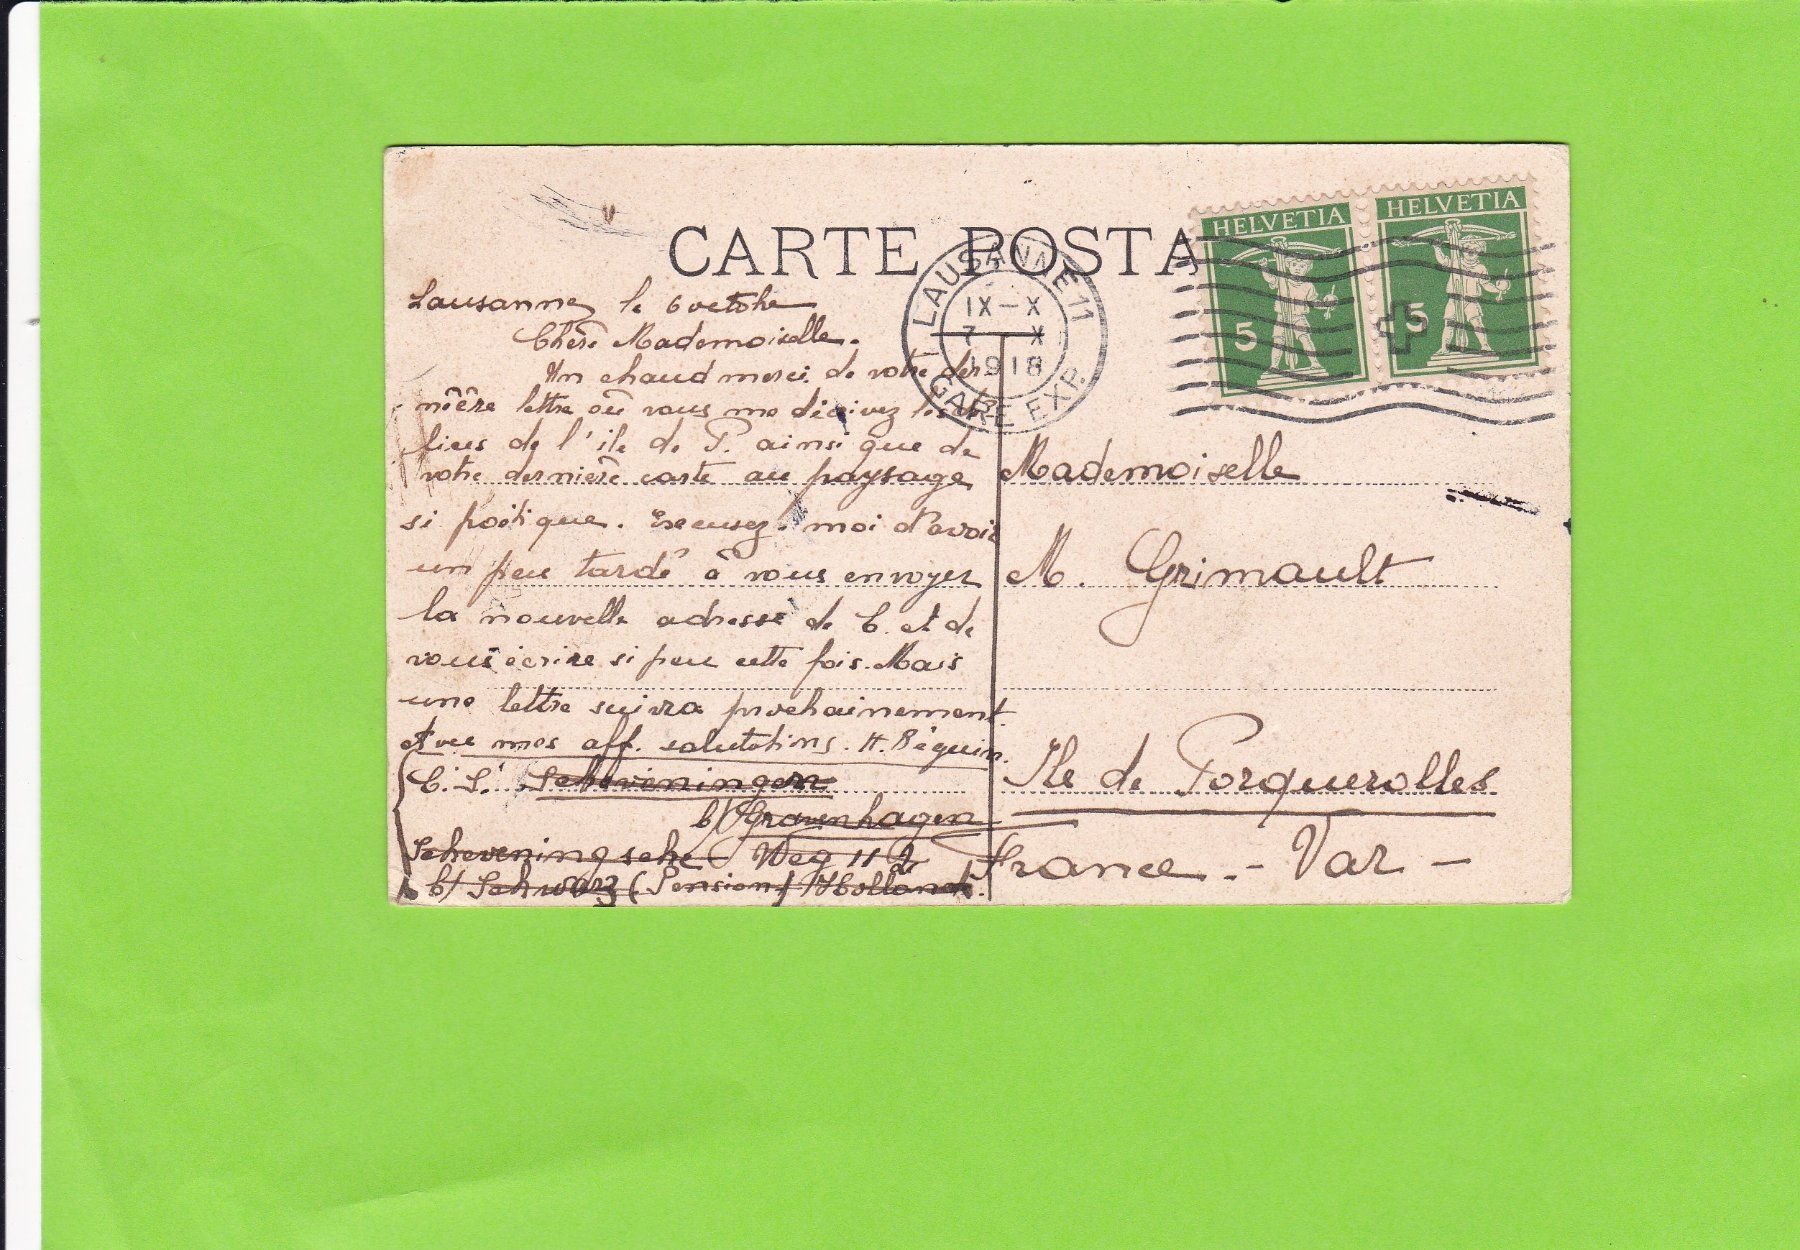 CARTE POSTA
HELVETIA
5
HELVETIA
5
LAUSANNE 11
IX-X
7 X
1918
GARE EXP.
Lausanne, le 6 octobre
Chère Mademoiselle.
Un chaud merci de votre der
nière lettre où vous me décrivez les
de l'île de P. ainsi que de
votre dernière carte au paysage
si poétique. Excusez-moi d'avoir
un peu tardé à vous envoyer
la nouvelle adresse de C. et de
vous écrire si peu cette fois. Mais
une lettre suivra prochainement.
Avec mes aff. salutations. H. Béguin.
C. S. Scheveningen
b/ Gravenhagen
Scheveningsche Weg 112
b/ Schwarz (Pension) Holland.
Mademoiselle
M. Grimault
Ile de Porquerolles
France. - Var -